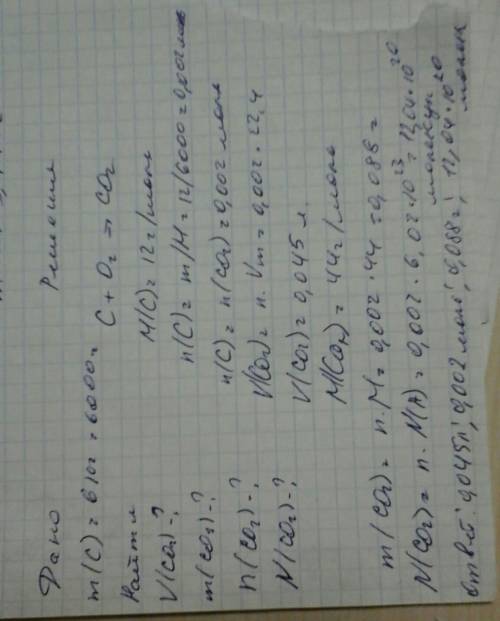 Дано
Решение
m(C) = 610г = 6000г
Найти
V(CO₂)-?
m(CO₂)-?
n(CO₂)-?
N(CO₂)-?
C + O₂ = CO₂
M(C) = 12г/моль
n(C) = m/M = 12/6000 = 0,002 моль
n(C) = n(CO₂) = 0,002 моль
V(CO₂) = n · Vm = 0,002 · 22,4
V(CO₂) = 0,045 л
M(CO₂) = 44г/моль
m(CO₂) = n · M = 0,002 · 44 = 0,088г
N(CO₂) = n · N(A) = 0,002 · 6,02·10²³ = 12,04·10²⁰
молекул
ответ: 0,045л; 0,002 моль; 0,088г; 12,04·10²⁰
молек